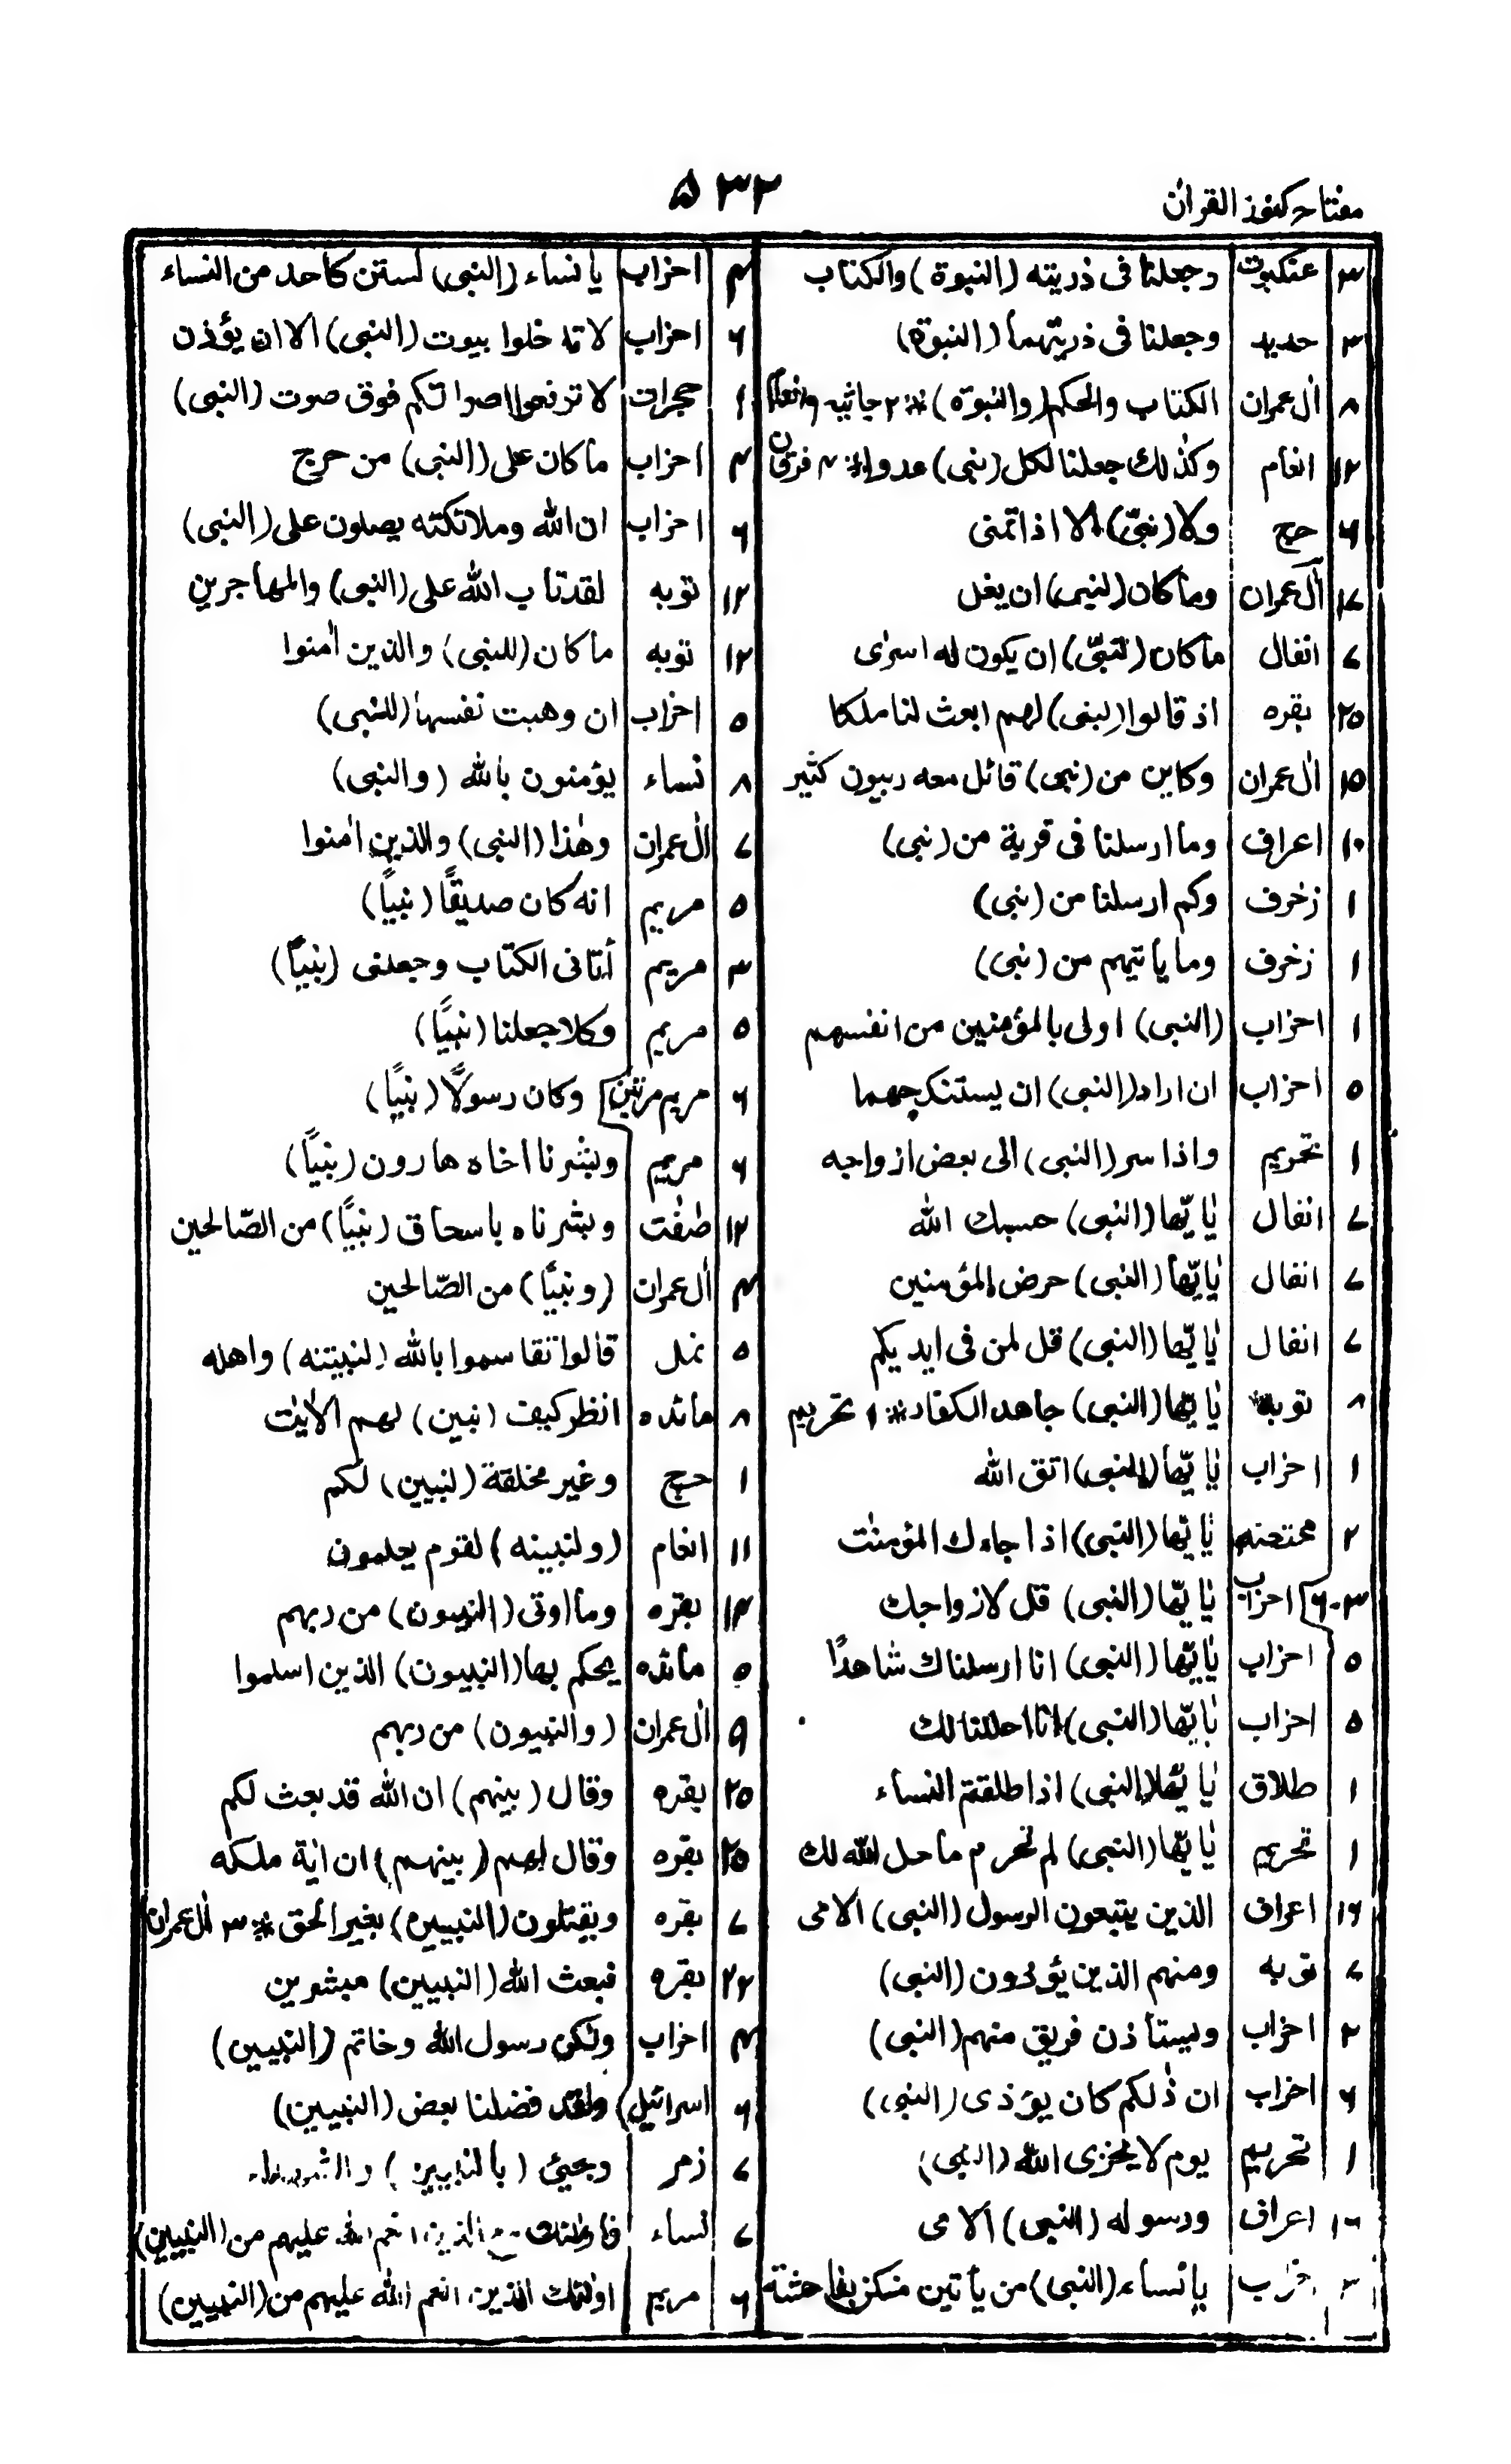 مفتاح كنوز القران
۵۳۲
۳ عنكبوت وجعلنا فى ذريته (النبوة) والكتاب
۳ حديد وجعلنا فى ذريتهما (النبوة)
۸ اٰل عمران الكتاب والحكم (والنبوة) * ۲ جاثيه وانعام
۱۴ انعام وكذٰلك جعلنا لكل (نبى) عدوا * ۳ فرقان
۶ حج ولا (نبىّ) الا اذا تمنى
۱۷ اٰل عمران وما كان (لنبى) ان يغل
۷ انفال ما كان (لنبىّ) ان يكون له اسرٰى
۲۵ بقره اذ قالوا (لنبى) لهم ابعث لنا ملكا
۱۵ اٰل عمران وكاين من (نبى) قاتل معه ربيون كثير
۱۰ اعراف وما ارسلنا فى قرية من (نبى)
۱ زخرف وكم ارسلنا من (نبى)
۱ زخرف وما ياتيهم من (نبى)
۱ احزاب (النبى) اولى بالمؤمنين من انفسهم
۵ احزاب ان اراد (النبى) ان يستنكحها
۱ تحريم واذا سر (النبى) الى بعض ازواجه
۷ انفال يٰايّها (النبى) حسبك الله
۷ انفال يٰايّها (النبى) حرض المؤمنين
۷ انفال يٰايّها (النبى) قل لمن فى ايديكم
۸ توبه يٰايّها (النبى) جاهد الكفار * ۱ تحريم
۱ احزاب يٰايّها (النبى) اتق الله
۲ ممتحنه يٰايّها (النبى) اذا جاءك المؤمنٰت
۳-۶ احزاب يٰايّها (النبى) قل لازواجك
۵ احزاب يٰايّها (النبى) انا ارسلناك شاهدًا
۵ احزاب يٰايّها (النبى) انا احللنا لك
۱ طلاق يٰايّها (النبى) اذا طلقتم النساء
۱ تحريم يٰايّها (النبى) لم تحرم ما حل الله لك
۱۹ اعراف الذين يتبعون الرسول (النبى) الامى
۷ توبه ومنهم الذين يؤذون (النبى)
۲ احزاب ويستأذن فريق منهم (النبى)
۶ احزاب ان ذٰلكم كان يؤذى (النبى)
۱ تحريم يوم لا يخزى الله (النبى)
۱۹ اعراف ورسوله (النبى) الامى
احزاب يا نساء (النبى) من يأتين منكن بفاحشة
۴ احزاب يا نساء (النبى) لستن كاحد من النساء
۶ احزاب لا تدخلوا بيوت (النبى) الا ان يؤذن
۱ حجرات لا ترفعوا اصواتكم فوق صوت (النبى)
۴ احزاب ما كان على (النبى) من حرج
۶ احزاب ان الله وملائكته يصلون على (النبى)
۱۲ توبه لقد تاب الله على (النبى) والمهاجرين
۱۲ توبه ما كان (للنبى) والذين اٰمنوا
۵ احزاب ان وهبت نفسها (للنبى)
۸ نساء يؤمنون بالله (والنبى)
۷ اٰل عمران وهٰذا (النبى) والذين اٰمنوا
۵ مريم انه كان صديقًا (نبيًا)
۳ مريم أتانى الكتاب وجعلنى (نبيًا)
۵ مريم وكلا جعلنا (نبيًا)
۶ مريم مرتين وكان رسولًا (نبيًا)
۶ مريم وبشرنا اخاه هارون (نبيًا)
۱۲ صٰفٰت وبشرناه باسحاق (نبيًا) من الصّالحين
۴ اٰل عمران (ونبيًا) من الصّالحين
۵ نمل قالوا تقاسموا بالله (لنبيتنه) واهله
۸ مائده انظر كيف (نبين) لهم الاٰيٰت
۱ حج وغير مخلقة (لنبين) لكم
۱۱ انعام (ولنبينه) لقوم يعلمون
۱۴ بقره وما اوتى (النبيون) من ربهم
۵ مائده يحكم بها (النبيون) الذين اسلموا
۹ اٰل عمران (والنبيون) من ربهم
۲۵ بقره وقال (بينهم) ان الله قد بعث لكم
۲۵ بقره وقال لهم (بينهم) ان اٰية ملكه
۷ بقره ويقتلون (النبيين) بغير الحق * ۳ اٰل عمران
۲۲ بقره فبعث الله (النبيين) مبشرين
۴ احزاب ولكن رسول الله وخاتم (النبيين)
۶ اسرائيل ولقد فضلنا بعض (النبيين)
۷ زمر وجئ (بالنبيين)
۷ نساء فاولئك مع الذين انعم الله عليهم من (النبيين)
۶ مريم اولئك الذين انعم الله عليهم من (النبيين)